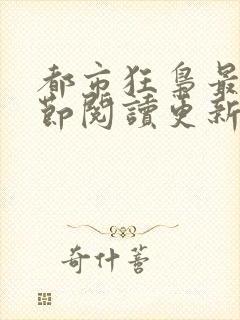 都市狂梟最
節閱讀更新
奇什蒈